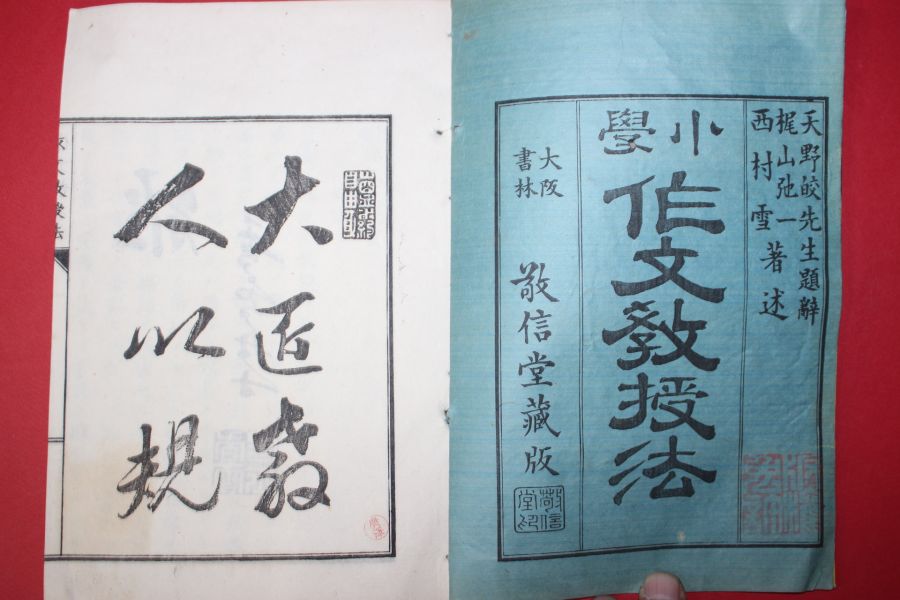 天野皎先生題辭
梶山弛一
西村雪著述
小學
作文教授法
大阪
書林
敬信堂藏版
敬信
堂印
大匠教
人以規